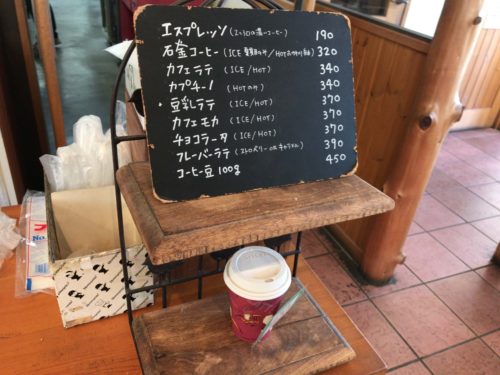 エスプレッソ 190
石釜コーヒー (ICE 夏期のみ/HOT 320
カフェラテ (ICE/HOT) 340
カプチーノ (HOTのみ) 340
・豆乳ラテ (ICE/HOT) 370
カフェモカ (ICE/HOT) 370
チョコラータ (ICE/HOT) 370
フレーバーラテ (ストロベリー or キャラメル) 390
コーヒー豆 100g 450
No.